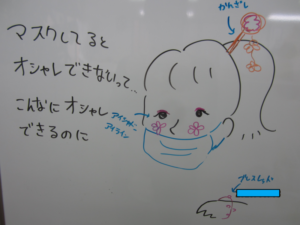 マスクしてると
オシャレできないって..
こんなにオシャレ
できるのに
かんざし
アイシャドー
アイライン
ブレスレット